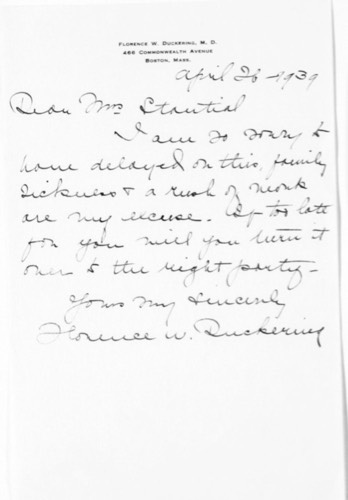 FLORENCE W. DUCKERING, M. D.
466 COMMONWEALTH AVENUE
BOSTON, MASS.
April 26 - 1939
Dear Mrs Stantial
I am so sorry to
have delayed on this, family
sickness & a rush of work
are my excuse. If too late
for you will you turn it
over to the right party -
Yours very sincerely
Florence W. Duckering